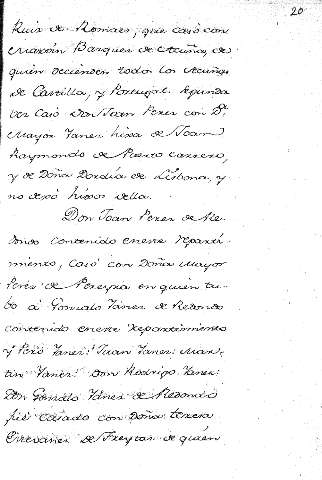 20
Ruiz de Romaes, que casó con
Martin Bazquez de Acuña, de
quien decienden todos los Acuñas
de Castilla, y Portugal. Segunda
vez Casó Don Joan Perez con D.ª
Mayor Yanez hixa de Joan
Raymondo de Puerto carrero,
y de Doña Dordia de Lisbona, y
no dexó hixos della.
Don Joan Perez de Re-
dondo contenido eneste reparti-
miento, Casó con Doña Mayor
Perez de Pereyra en quien tu-
bo á Gonzalo Yanez de Redondo
contenido eneste Repartimiento
y Pero Yanez: Juan Yanez: Mar-
tin Yanez: Don Rodrigo Yanez:
Don Gonzalo Yanez de Redondo
fué Casado con Doña Teresa
Estevanez de Freytas de quien